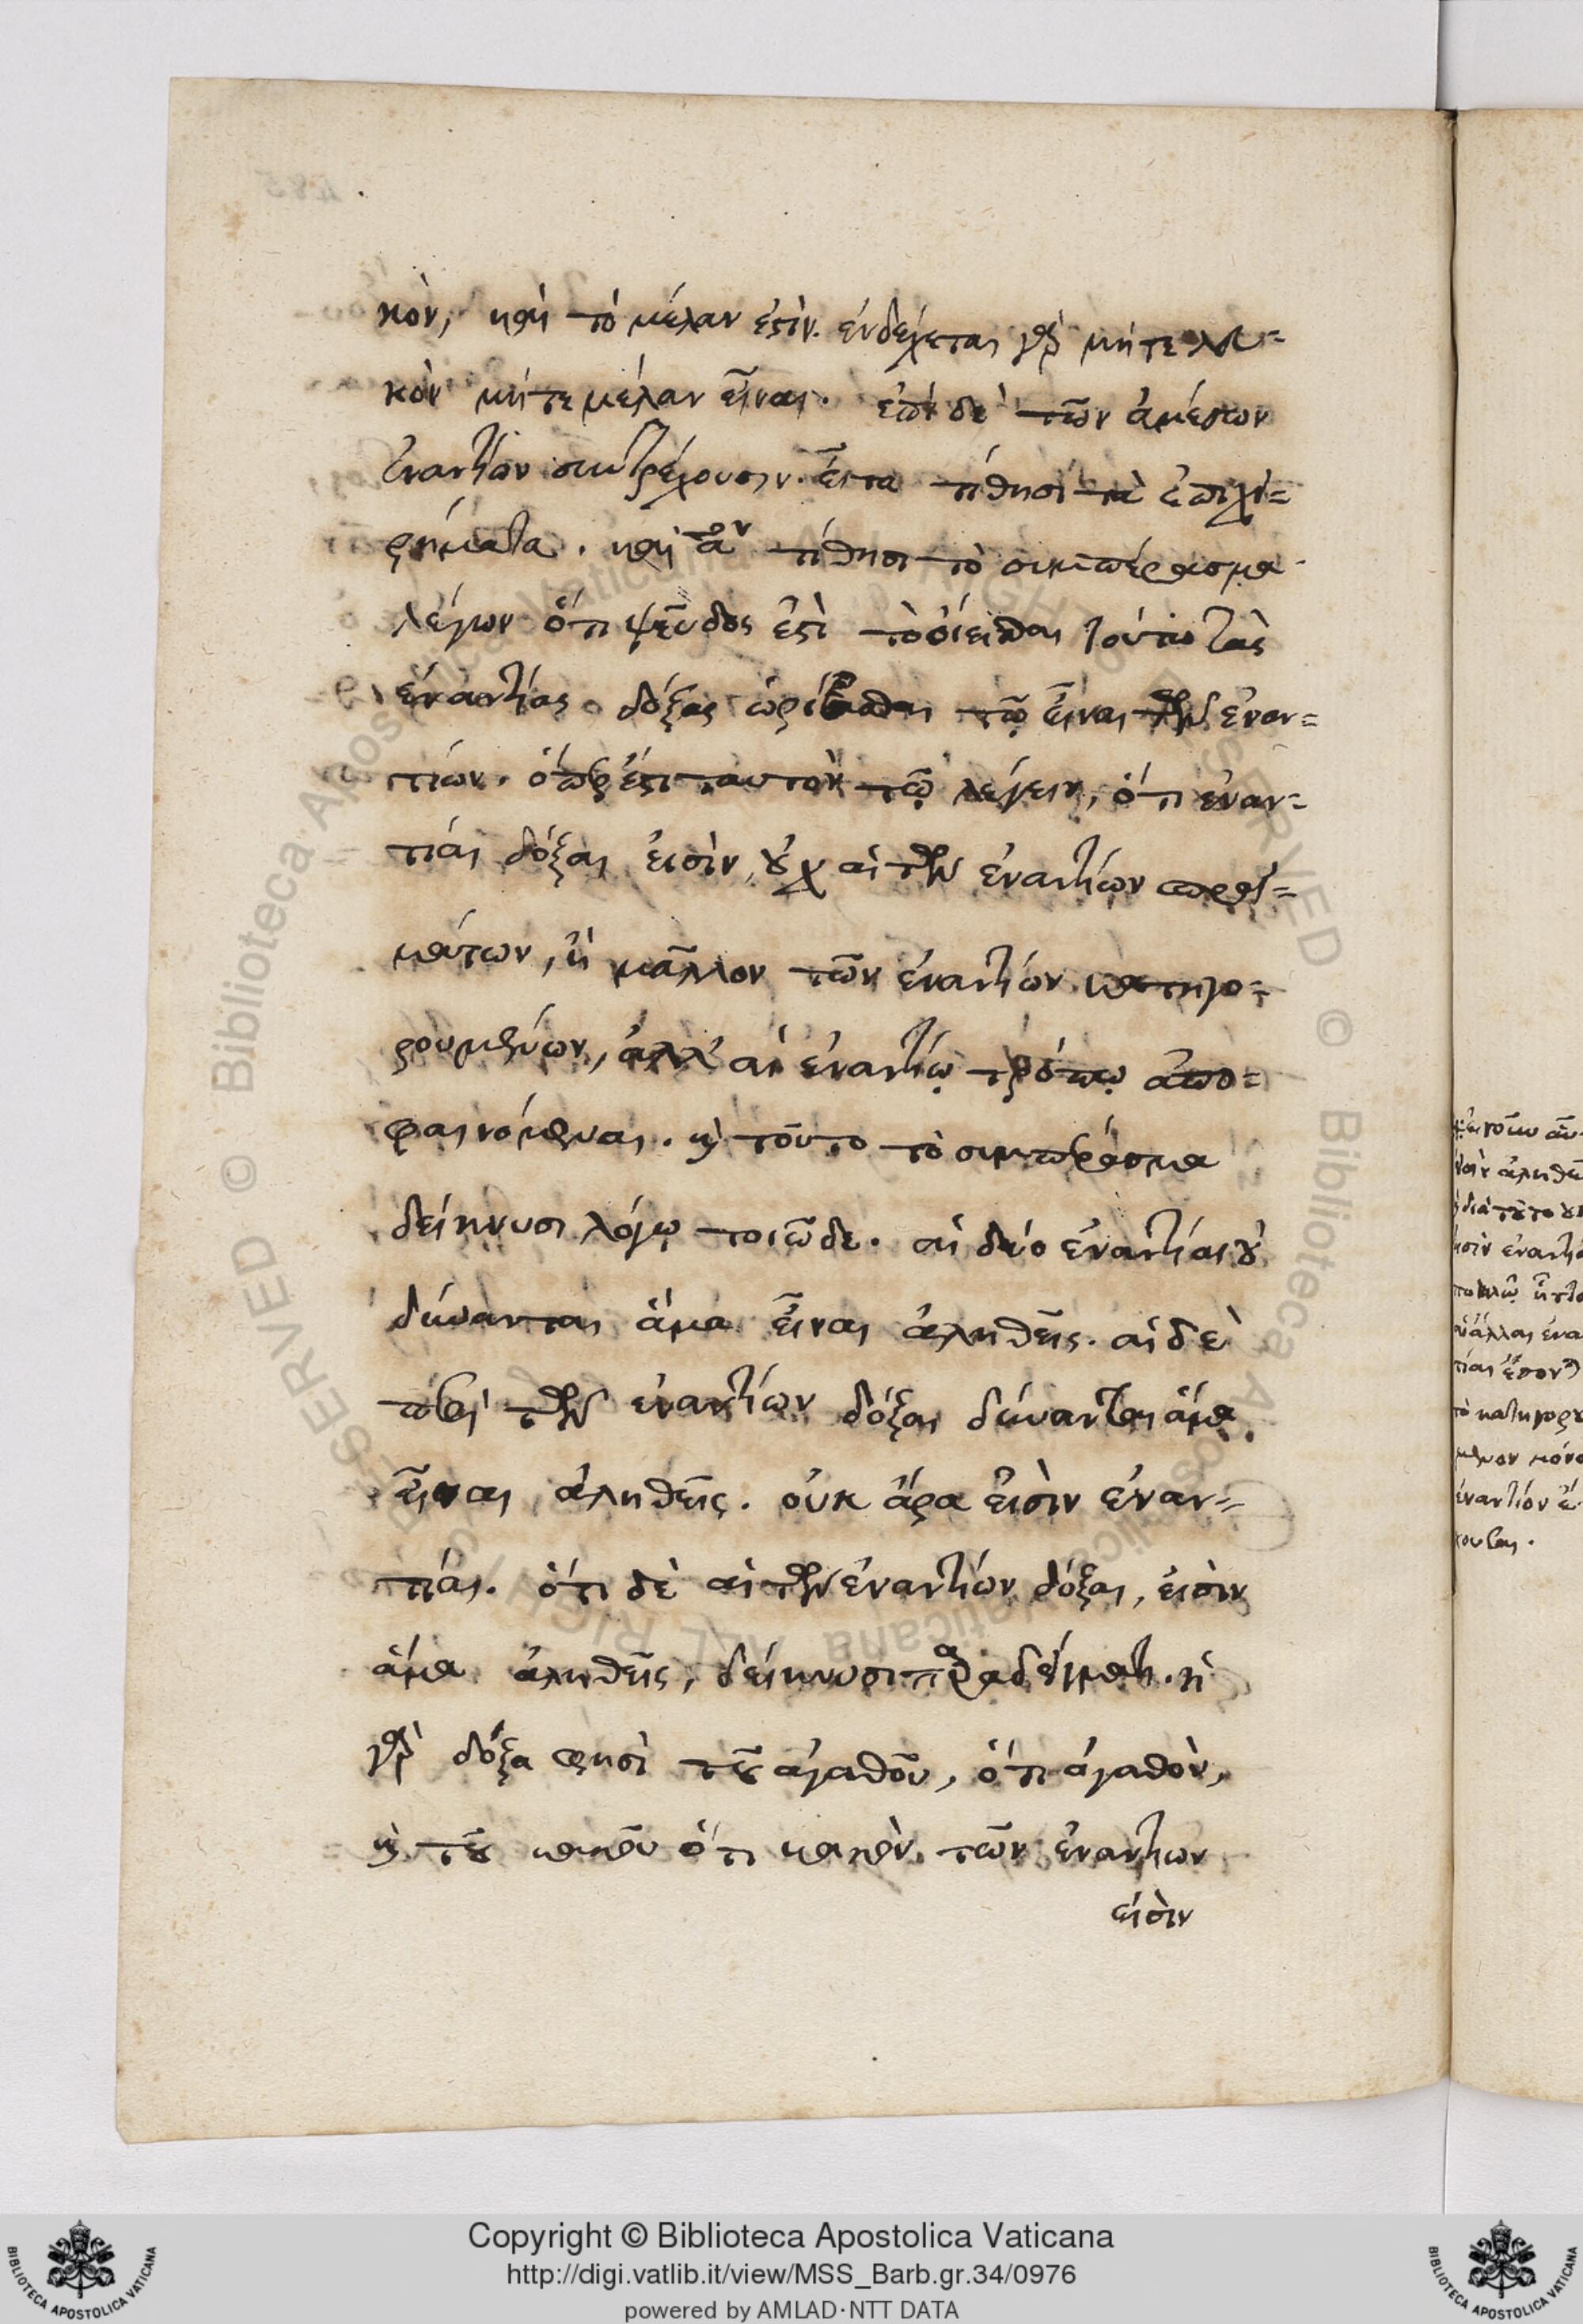 κὸν, καὶ τὸ μέλαν ἐστίν. ἐνδέχεται γὰρ μήτε λευ=
κὸν μήτε μέλαν εἶναι. ἐπὶ δὲ τῶν ἀμέσων
ἐναντίων συντρέχουσιν. εἶτα τίθησι τὰ ἐπιχει=
ρήματα. καὶ αον τίθησι τὸ συμπέρασμα
λέγων ὅτι ψεῦδος ἐστὶ τὸ οἴεσθαι τούτω τὰς
ἐναντίας δόξας ὡρίσθαι τῷ εἶναι τῶν ἐναν=
τίων. ὅπερ ἐστι ταυτὸν τῷ λέγειν, ὅτι ἐναν=
τίαι δόξαι εἰσὶν, οὐχ αἱ τῶν ἐναντίων πραγ=
μάτων, ἢ μᾶλλον τῶν ἐναντίων κατηγο=
ρουμένων, ἀλλ' αἱ ἐναντίῳ τρόπῳ ἀπο=
φαινόμεναι. καὶ τοῦτο τὸ συμπέρασμα
δείκνυσι λόγῳ τοιῷδε. αἱ δύο ἐναντίαι οὐ
δύνανται ἅμα εἶναι ἀληθεῖς. αἱ δὲ
περὶ τῶν ἐναντίων δόξαι δύνανται ἅμα
εἶναι ἀληθεῖς. οὐκ ἄρα εἰσὶν ἐναν=
τίαι. ὅτι δὲ αἱ τῶν ἐναντίων δόξαι, εἰσὶν
ἅμα ἀληθεῖς, δείκνυσι παραδείγματι. ἡ
γὰρ δόξα φησὶ τοῦ ἀγαθοῦ, ὅτι ἀγαθὸν,
καὶ τοῦ κακοῦ ὅτι κακὸν, τῶν ἐναντίων
εἰσὶν
Copyright © Biblioteca Apostolica Vaticana
http://digi.vatlib.it/view/MSS_Barb.gr.34/0976
powered by AMLAD·NTT DATA
BIBLIOTECA APOSTOLICA VATICANA
BIBLIOTECA APOSTOLICA VATICANA